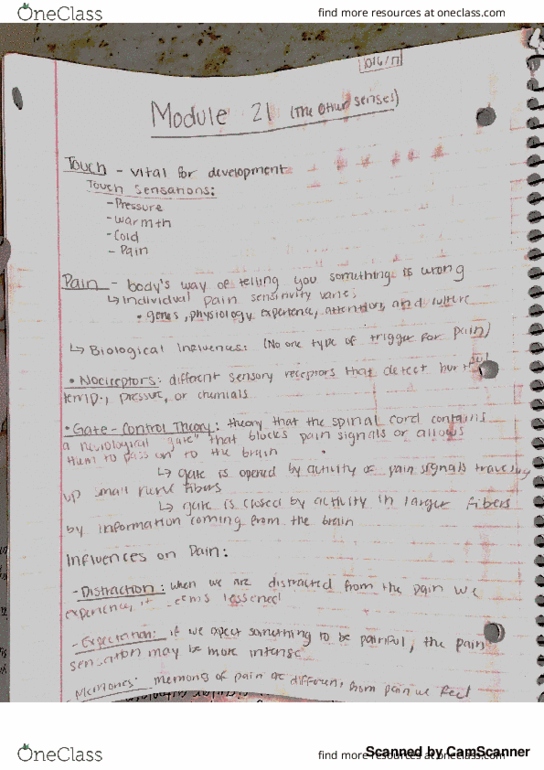 OneClass
find more resources at oneclass.com
10/6/17
Module 21 (The Other Senses)
Touch - vital for development
Touch Sensations:
- Pressure
- warmth
- Cold
- Pain
Pain - body's way of telling you something is wrong
↳ Individual pain sensitivity varie;
• genes, physiology, experience, attention, and culture
↳ Biological Influences: (No one type of trigger for pain)
• Nociceptors: different sensory receptors that detect hurtful
temp., pressure, or chemials
• Gate-Control Theory: theory that the spinal cord contains
a neurological "gate" that blocks pain signals or allows
them to pass on to the brain
↳ gate is opened by activity of pain signals traveling
up small nerve fibers
↳ gate is closed by activity in larger fibers
by information coming from the brain
Influences on Pain:
- Distraction: when we are distracted from the pain we
experience, it seems lessened
- Expectation: if we expect something to be painful, the pain
sensation may be more intense
- Memories: memory of pain different from pain we feel
OneClass
find more resources at oneclass.com
Scanned by CamScanner